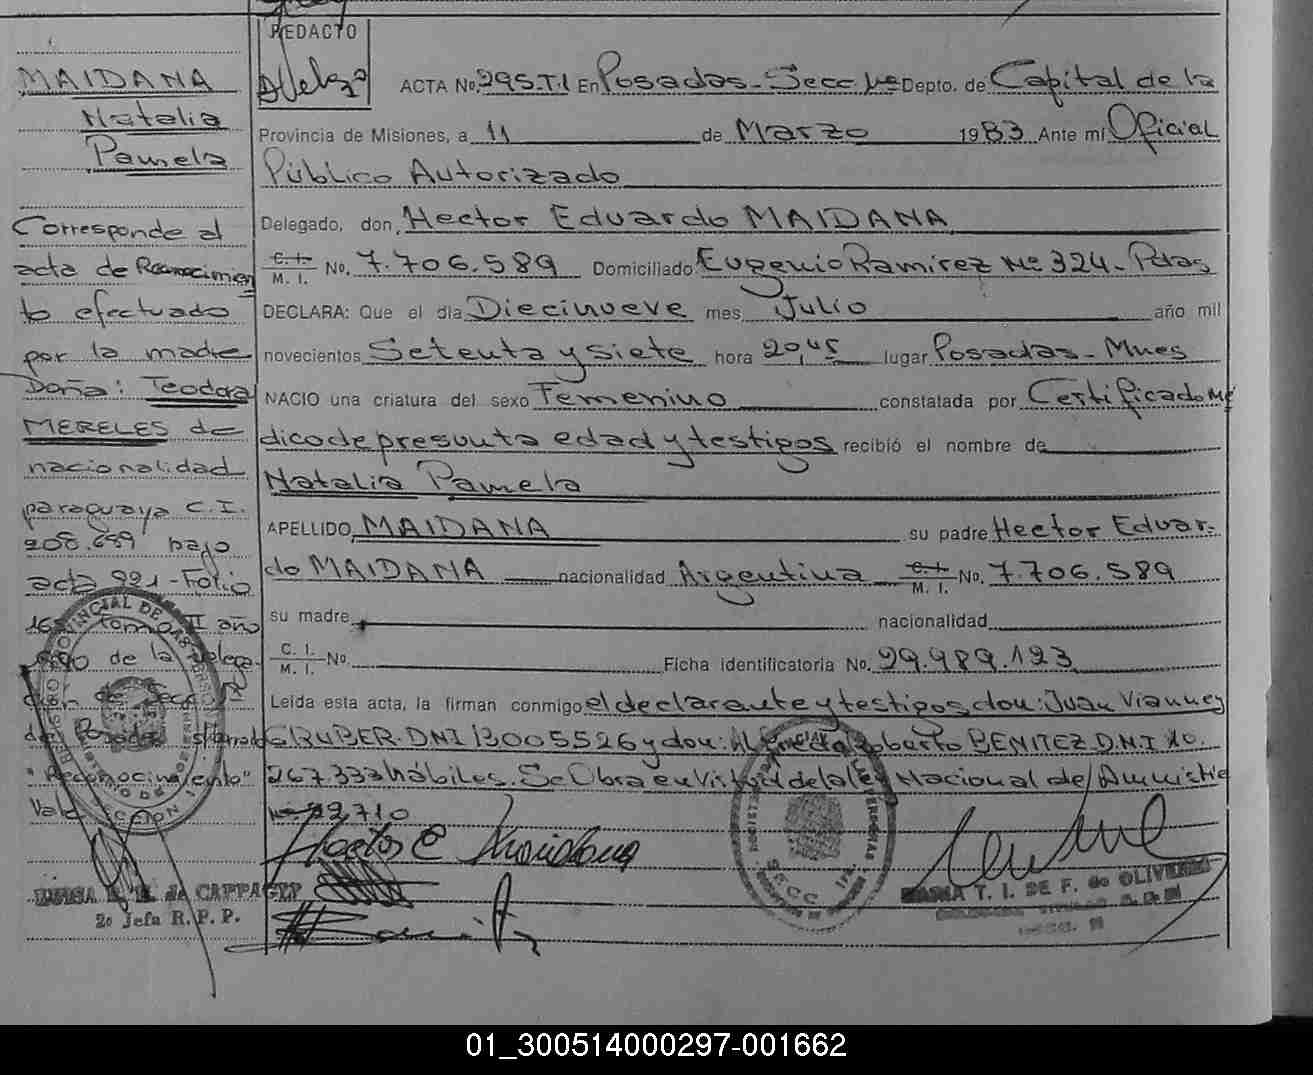 REDACTO
MAIDANA
Natalia
Pamela
Corresponde al
acta de Reconocimien
to efectuado
por la madre
Doña: Teodora
MERELES de
nacionalidad
paraguaya C.I.
208.699 bajo
acta 221-Folio
Tomo II año
de la Delega-
de Posadas
"Reconocimiento"
Vale
ACTA No. 295.T.I En Posadas-Secc. 1ra Depto. de Capital de la
Provincia de Misiones, a 11 de Marzo 1983 Ante mí Oficial
Público Autorizado
Delegado, don, Hector Eduardo MAIDANA
C. I. M. I. No. 7.706.589 Domiciliado Eugenio Ramirez Nº 324-Pdas
DECLARA: Que el día Diecinueve mes Julio año mil
novecientos Setenta y siete hora 20,45 lugar Posadas-Mnes
NACIO una criatura del sexo Femenino constatada por Certificado Mé
dico de presunta edad y testigos recibió el nombre de
Natalia Pamela
APELLIDO MAIDANA su padre Hector Eduar-
do MAIDANA nacionalidad Argentina C. I. M. I. No. 7.706.589
su madre nacionalidad
C. I. M. I. No. Ficha identificatoria No. 29.989.123
Leída esta acta, la firman conmigo el declarante y testigos don: Juan Vianney
GRUBER-DNI 13005526 y don: Alfredo Roberto BENITEZ D.N.I 10.
267.333 hábiles. Se Obra en Virtud de la Ley Nacional de Amnistia
Nº 22.710
Hector E Maidana
de CAPPAGLI
2º Jefa R. P. P.
T. I. DE F. de OLIVEIRA
SECC. 1ra.
01_300514000297-001662